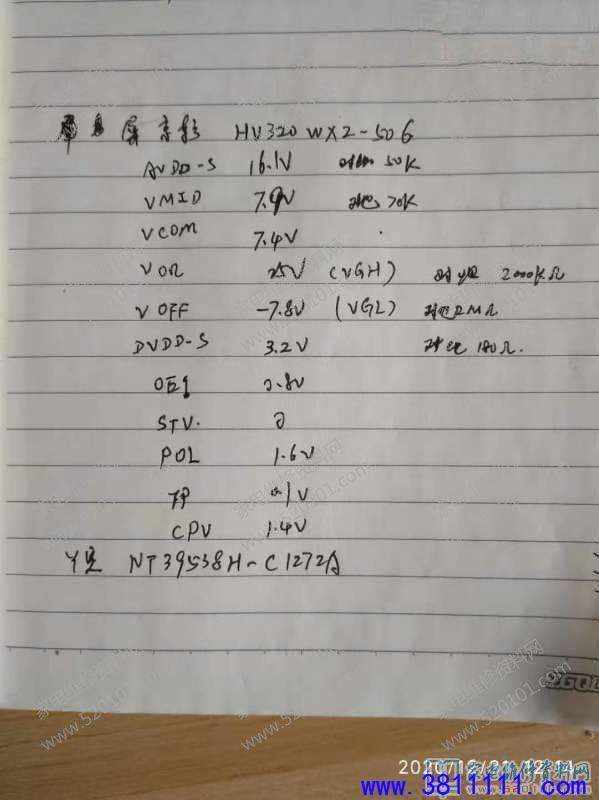 屏 京东 HV320WX2-506
AVDD-S 16.1V 对地 50K
VMID 7.9V 对地 70K
VCOM 7.4V
VON 25V (VGH) 对地 2000KΩ
VOFF -7.8V (VGL) 对地2MΩ
DVDD-S 3.2V 对地 180Ω.
OE1 0.8V
STV. 0
POL 1.6V
TP 0.1V
CPV 1.4V
NT39538H-C1272A
家电维修资料网
www.520101.com
12:14
www.3811111.com